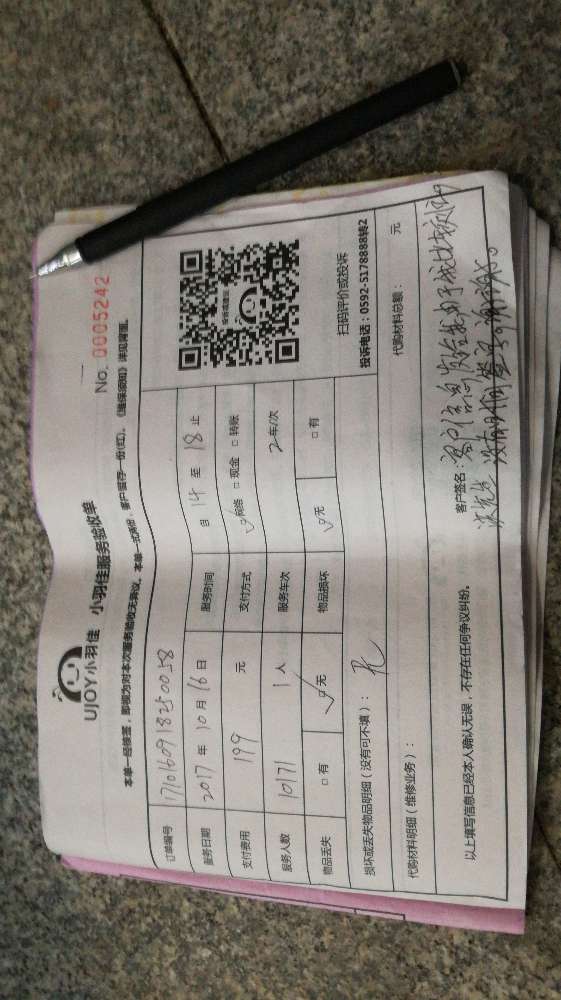 UJOY小羽佳 小羽佳服务验收单
No. 0005242
本单一经核签，即视为对本次服务验收无异议。本单一式两份，客户留存一份(红)，《维保须知》详见背面。
订单编号 1710160918250058
服务日期 2017 年 10 月 16 日 服务时间 自 14 至 18 止
支付费用 199 元 支付方式 网络 □ 现金 □ 转账
服务人数 10171 1 人 服务车次 2 车/次
物品丢失 □ 有 □ 无 物品损坏 □ 无 □ 有
损坏或丢失物品明细（没有可不填）： 无
代购材料明细（维修业务）： 代购材料总额： 元
扫码评价或投诉
投诉电话：0592-5178888转2
以上填写信息已经本人确认无误，不存在任何争议纠纷。
客户签名：客户信息发给我由于我比较
没有时间签字 谢谢。